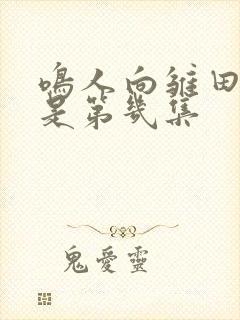 鳴人向雏田
是第幾集
鬼愛靈